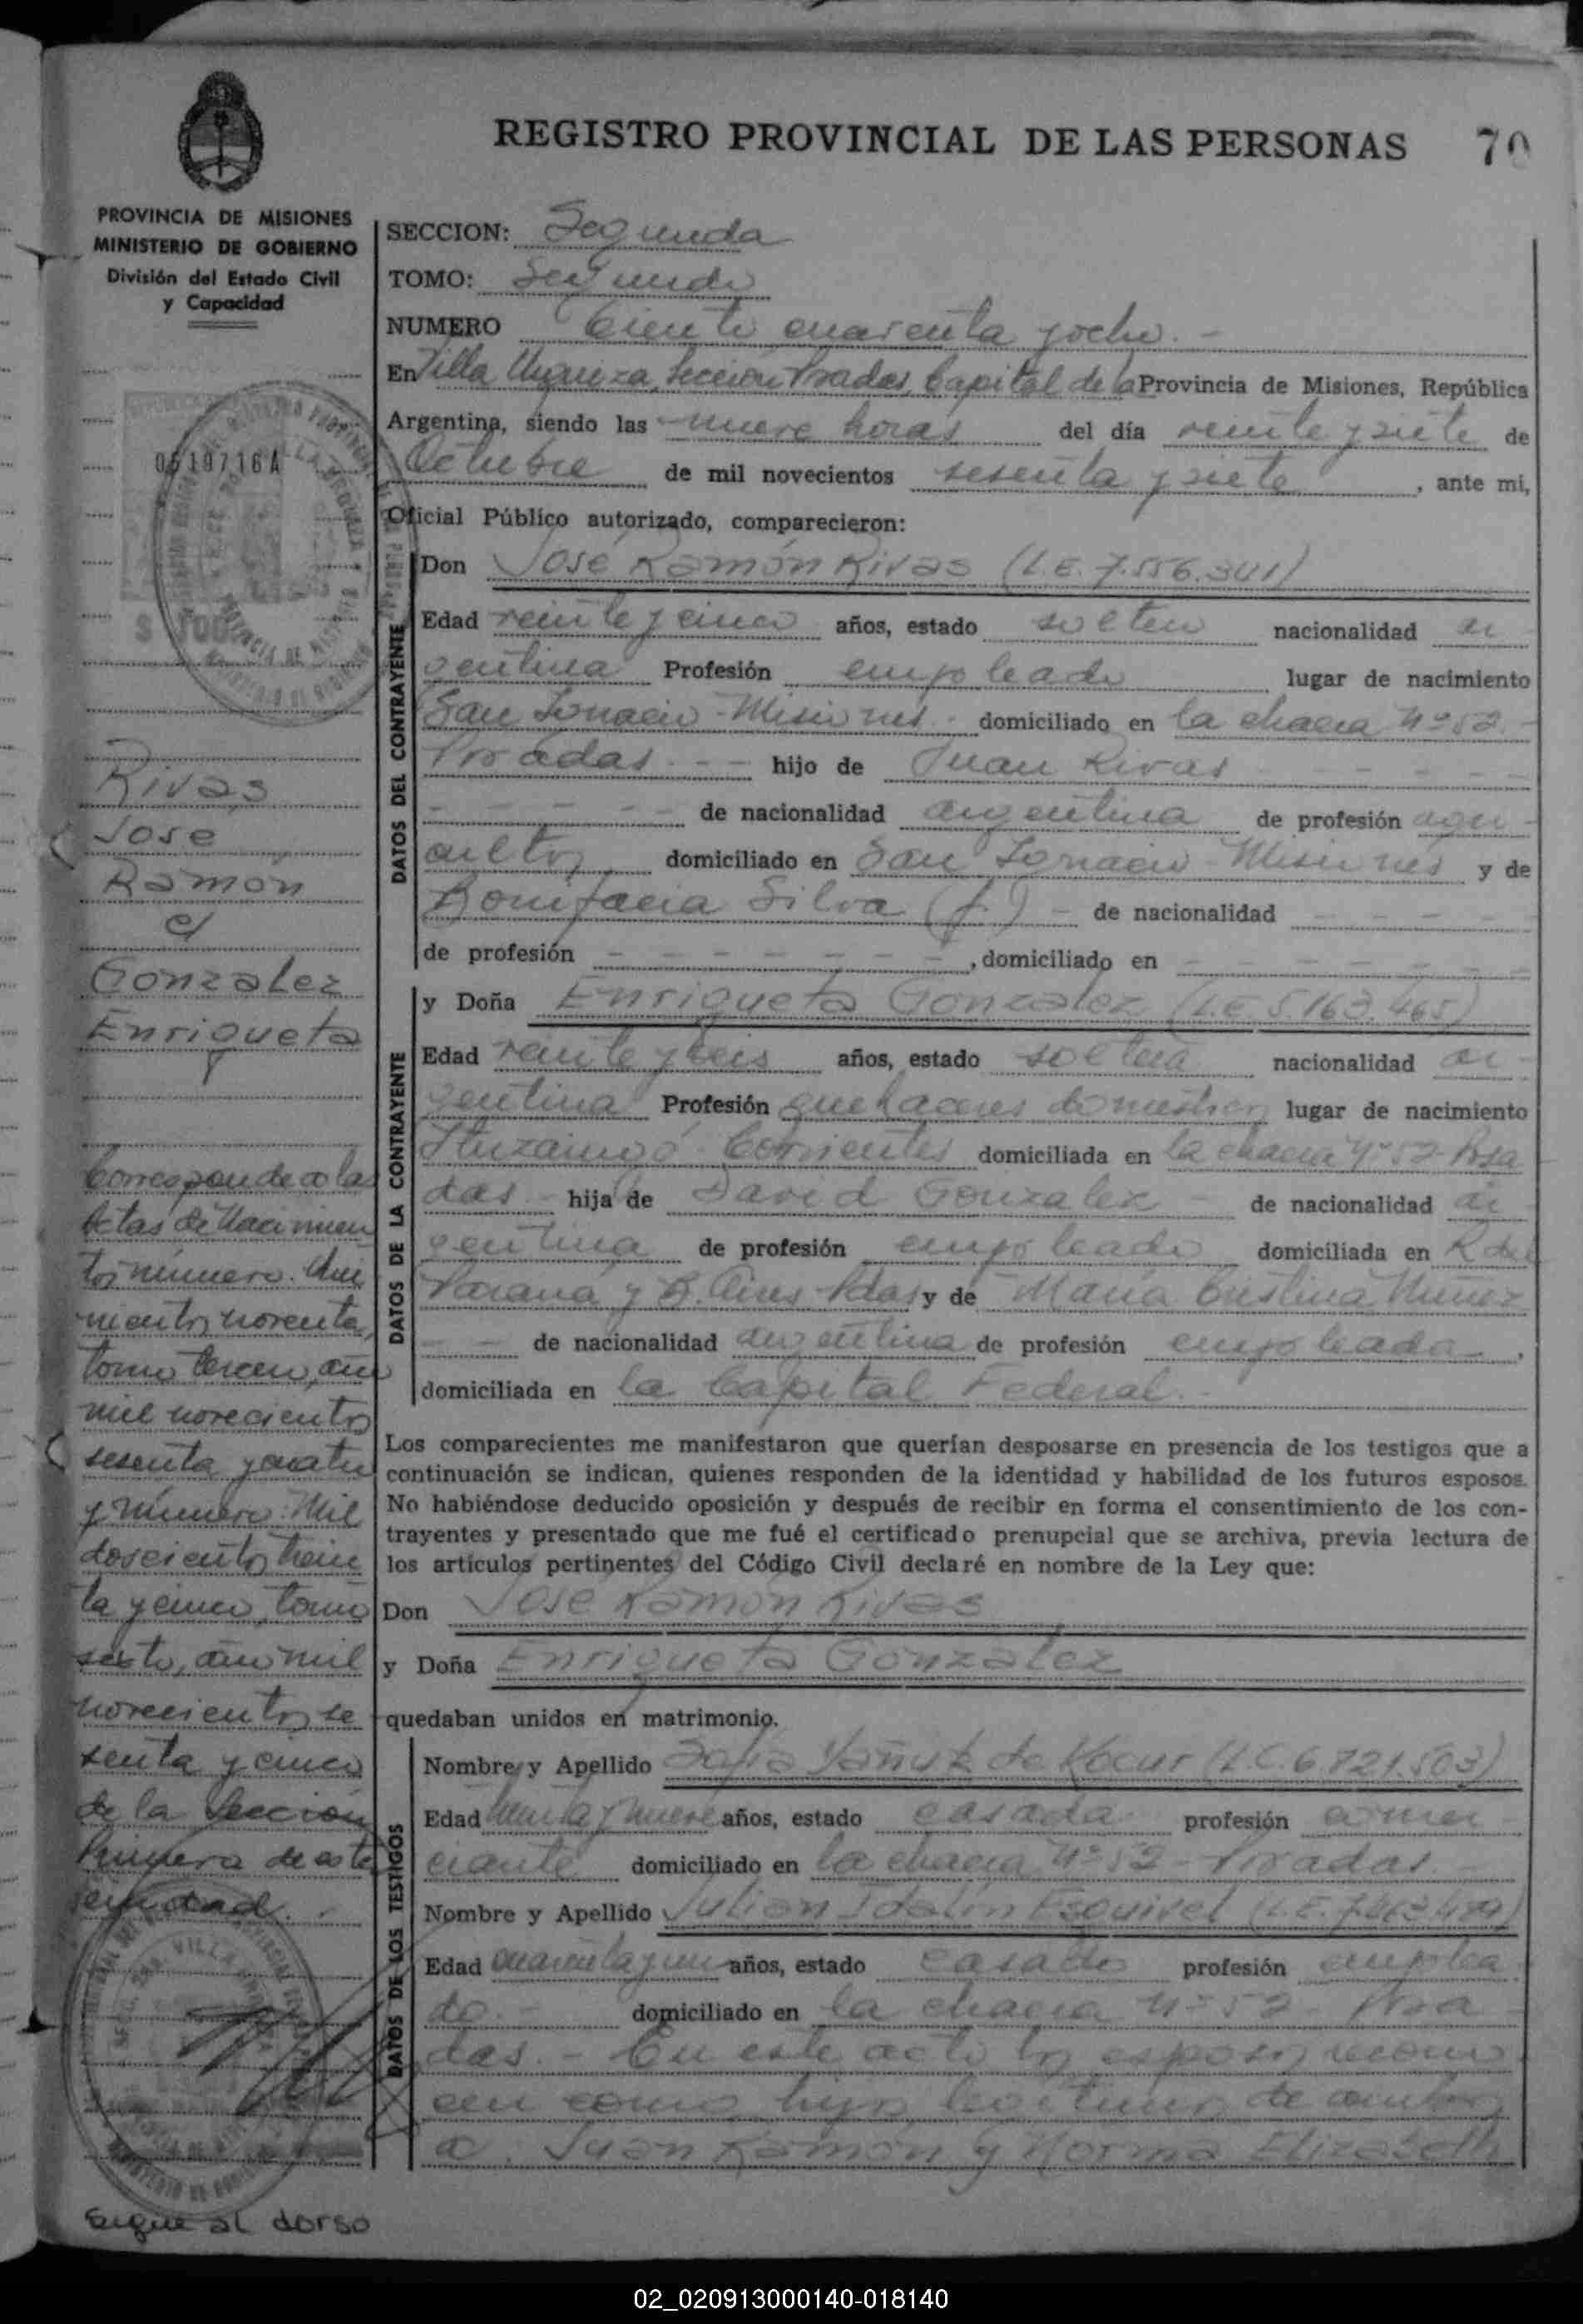 REGISTRO PROVINCIAL DE LAS PERSONAS 70
PROVINCIA DE MISIONES
MINISTERIO DE GOBIERNO
División del Estado Civil
y Capacidad
SECCION: Segunda
TOMO: Segundo
NUMERO Ciento cuarenta y ocho. -
En Villa Urquiza, Sección Posadas, Capital de la Provincia de Misiones, República
Argentina, siendo las nueve horas del día veinte y siete de
Octubre de mil novecientos sesenta y siete, ante mi,
Oficial Público autorizado, comparecieron:
DATOS DEL CONTRAYENTE
Don José Ramón Rivas (L.E. 7.556.341)
Edad veinte y cinco años, estado soltero nacionalidad ar
gentina Profesión empleado lugar de nacimiento
San Ignacio - Misiones - domiciliado en la chacra Nº 52.
Posadas - - hijo de Juan Rivas - - - -
- - - - - de nacionalidad argentina de profesión agri
cultor domiciliado en San Ignacio - Misiones y de
Bonifacia Silva (f.) - de nacionalidad - - - - -
de profesión - - - - - - -, domiciliado en - - - - - - -
DATOS DE LA CONTRAYENTE
y Doña Enriqueta Gonzalez (L.C. 5.163.465)
Edad veinte y seis años, estado soltera nacionalidad ar-
gentina Profesión quehaceres domésticos lugar de nacimiento
Ituzaingó - Corrientes domiciliada en la chacra Nº 52 - Posa
das - hija de David Gonzalez - de nacionalidad ar
gentina de profesión empleado domiciliada en
Paraná y B. Aires - Pdas y de María Cristina Nuñez
- - de nacionalidad argentina de profesión empleada,
domiciliada en la Capital Federal. -
Los comparecientes me manifestaron que querían desposarse en presencia de los testigos que a
continuación se indican, quienes responden de la identidad y habilidad de los futuros esposos.
No habiéndose deducido oposición y después de recibir en forma el consentimiento de los con-
trayentes y presentado que me fué el certificado prenupcial que se archiva, previa lectura de
los artículos pertinentes del Código Civil declaré en nombre de la Ley que:
Don José Ramón Rivas
y Doña Enriqueta Gonzalez
quedaban unidos en matrimonio.
DATOS DE LOS TESTIGOS
Nombre y Apellido Sofia de Kocur (L.C. 6.821.503)
Edad treinta y nueve años, estado casada profesión comer
ciante domiciliado en la chacra Nº 52 - Posadas. -
Nombre y Apellido Julian Idalín Esquivel (L.E. 7.463.479)
Edad cuarenta y un años, estado casado profesión emplea
do. - domiciliado en la chacra Nº 52 - Posa
das. - En este acto los esposos recono
cen como hijos legitimos de ambos
a: Juan Ramón y Norma Elizabeth
0519716A
Rivas
José
Ramón
c/
Gonzalez
Enriqueta
Corresponde a las
actas de Nacimien
tos número: Qui
nientos noventa,
tomo tercero, año
mil novecientos
sesenta y cuatro
y número: Mil
doscientos trein
ta y cinco, tomo
sexto, año mil
novecientos se
senta y cinco
de la Sección
Primera de esta
Sigue al dorso
02_020913000140-018140